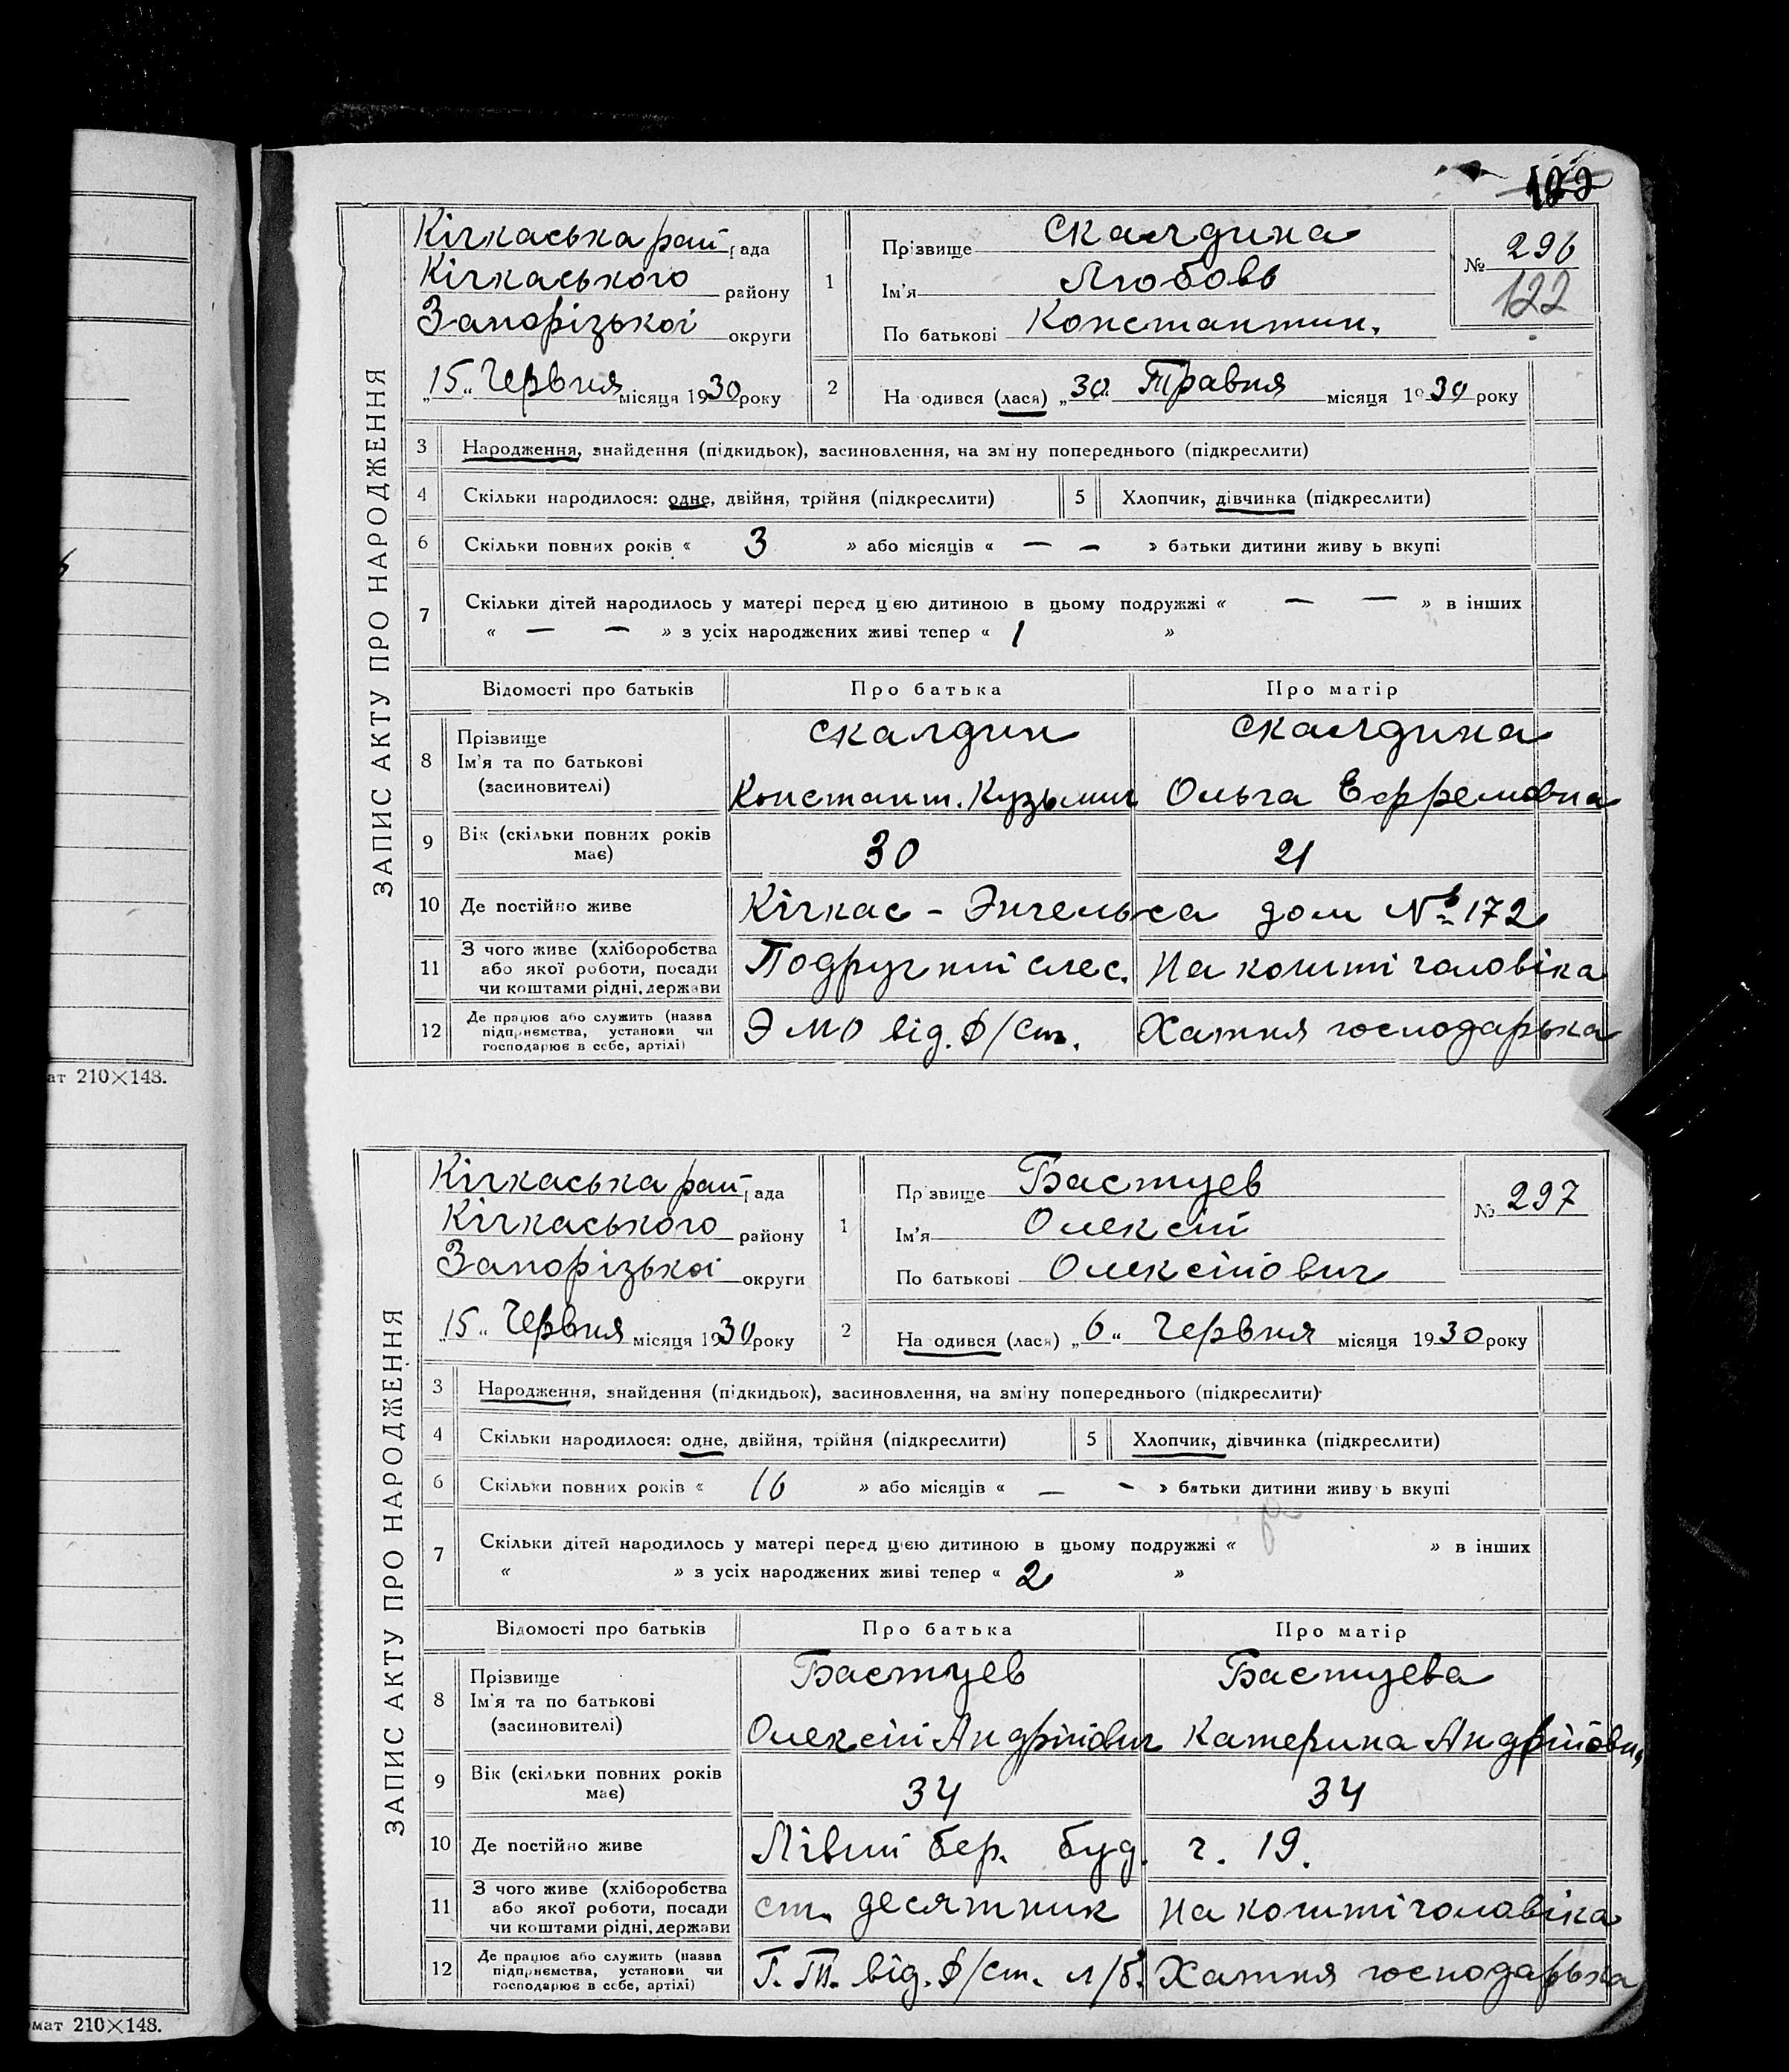 122
ЗАПИС АКТУ ПРО НАРОДЖЕННЯ
Кічкаська рай рада
Кічкаського району
Запорізької округи
„15„ Червня місяця 1930 року
1
Прізвище Скалдина
Ім'я Любовь
По батькові Константин.
№ 296
122
2 На одився (лася) „30„ Травня місяця 1930 року
3 Народження, знайдення (підкидьок), засиновлення, на зміну попереднього (підкреслити)
4 Скільки народилося: одне, двійня, трійня (підкреслити) 5 Хлопчик, дівчинка (підкреслити)
6 Скільки повних років « 3 » або місяців « — — » батьки дитини живу ь вкупі
7 Скільки дітей народилось у матері перед цією дитиною в цьому подружжі « — — » в інших
« — — » з усіх народжених живі тепер « 1 »
Відомості про батьків Про батька Про матір
8 Прізвище
Ім'я та по батькові
(засиновителі)
Скалдин
Констант. Кузьмич
Скалдина
Ольга Ефремовна
9 Вік (скільки повних років
має)
30 21
10 Де постійно живе Кічкас - Энгельса дом № 172
11 З чого живе (хліборобства
або якої роботи, посади
чи коштами рідні, держави
Подручний слес. На кошті чоловіка
12 Де працює або служить (назва
підприємства, установи чи
господарює в себе, артілі)
Э МО від. Ф/ст. Хатня господарька
ЗАПИС АКТУ ПРО НАРОДЖЕННЯ
Кічкаська рай рада
Кічкаського району
Запорізької округи
„15„ Червня місяця 1930 року
1
Прізвище Бастуев
Ім'я Олексій
По батькові Олексійович
№ 297
2 На одився (лася) „6„ Червня місяця 1930 року
3 Народження, знайдення (підкидьок), засиновлення, на зміну попереднього (підкреслити)
4 Скільки народилося: одне, двійня, трійня (підкреслити) 5 Хлопчик, дівчинка (підкреслити)
6 Скільки повних років « 16 » або місяців « — - » батьки дитини живу ь вкупі
7 Скільки дітей народилось у матері перед цією дитиною в цьому подружжі « » в інших
« » з усіх народжених живі тепер « 2 »
Відомості про батьків Про батька Про матір
8 Прізвище
Ім'я та по батькові
(засиновителі)
Бастуев
Олексій Андрійович
Бастуева
Катерина Андрійовна
9 Вік (скільки повних років
має)
34 34
10 Де постійно живе Лівий бер. буд. ч. 19.
11 З чого живе (хліборобства
або якої роботи, посади
чи коштами рідні, держави
ст. десятник На кошті чоловіка
12 Де працює або служить (назва
підприємства, установи чи
господарює в себе, артілі)
Г. Т. від. Ф/ст. л/б. Хатня господарька
ат 210×148.
мат 210×148.